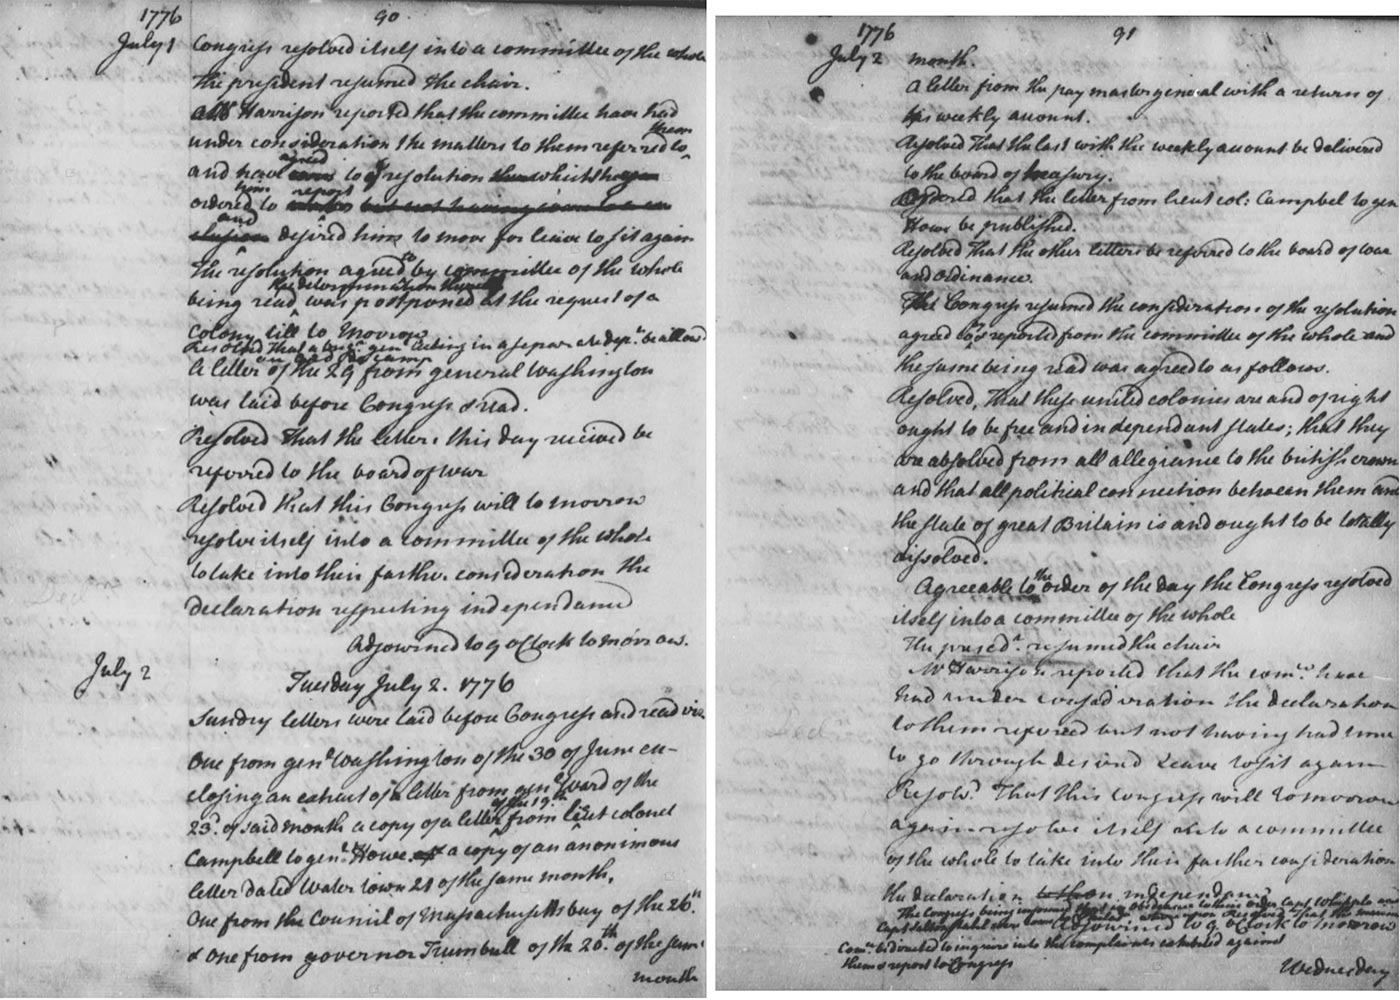 1776 90
July 1 Congress resolved itself into a committee of the whole
The president resumed the chair.
Mr Harrison reported that the committee have had
them
under consideration the matters to them referred to
agreed
and have come to a resolution which they
him report
ordered to
and
desired him to move for leave to sit again
to
The resolution agreed by committee of the whole
the determination thereof
being read was postponed at the request of a
colony till to morrow
Resolved That a brigr genl acting in a separate dept be allowed
an aid de camp
A letter of the 29 from general Washington
was laid before Congress & read.
Resolved That the letters this day received be
referred to the board of war
Resolved that this Congress will to morrow
resolve itself into a committee of the whole
to take into their farther consideration the
declaration respecting independance
Adjourned to 9 o Clock to morrow.
July 2
Tuesday July 2. 1776
Sundry letters were laid before Congress and read viz
One from genl Washington of the 30 of June en-
closing an extract of a letter from genl Ward of the
of the 19th
23d. of said month a copy of a letter from lieut colonel
Campbell to genl Howe a copy of an anonimous
letter dated Water town 21 of the same month.
One from the Council of Massachusetts bay of the 26th
& one from governor Trumbull of the 20th of the same
month
1776 91
July 2 month.
A letter from the pay master general with a return of
his weekly account.
Resolved That the last with the weekly account be delivered
to the board of treasury.
Ordered that the letter from lieut col: Campbel to gen
Howe be published.
Resolved That the other letters be referred to the board of war
and ordinance.
The Congress resumed the consideration of the resolution
agreed to & reported from the committee of the whole and
the same being read was agreed to as follows.
Resolved, That these united colonies are and of right
ought to be free and independant states; that they
are absolved from all allegiance to the british crown
and that all political connection between them and
the state of great Britain is and ought to be totally
dissolved.
the
Agreeable to order of the day the Congress resolved
itself into a committee of the whole
The presedt. resumed the chair
Mr Harrison reported that the comee have
had under consideration the declaration
to them referred but not having had time
to go through desired leave to sit again
Resolvd That this Congress will tomorrow
again resolve itself into a committee
of the whole to take into their farther consideration
the declaration on independance
The Congress being informed that in obedience to their order Capt Whipple and
Capt Saltonstal were whereupon Resolved That the marine
Adjourned to 9 o Clock to morrow
Come be directed to inquire into the complaints exhibited against
them & report to Congress
Wednesday